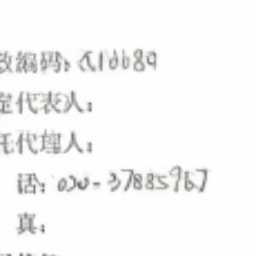 政编码：510689
定代表人：
托代理人：
话：020-37885967
真：